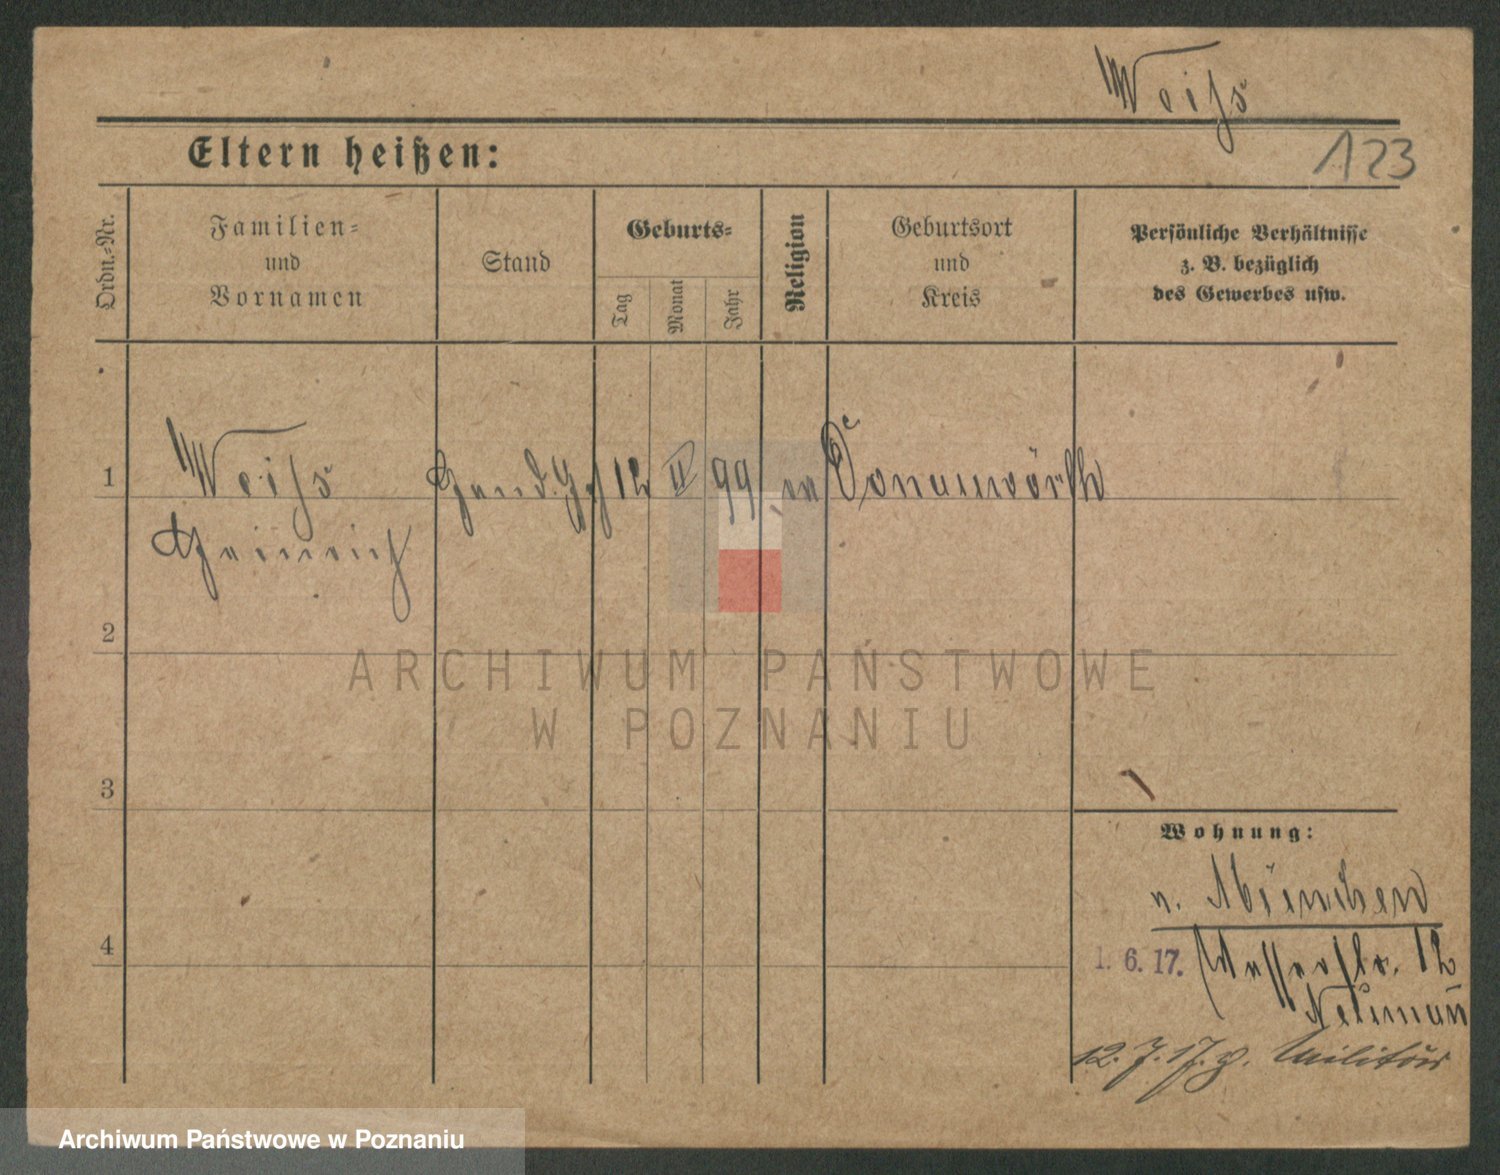 Weiss
Eltern heißen:
123
Ordn.-Nr.
Familien-
und
Vornamen
Stand
Geburts-
Tag
Monat
Jahr
Religion
Geburtsort
und
Kreis
Persönliche Verhältnisse
z. B. bezüglich
des Gewerbes usw.
1
Weiss
Heinrich
12
II
99
Donauwörth
2
3
4
ARCHIWUM PAŃSTWOWE
W POZNANIU
Wohnung:
v. München
1. 6. 17. Wasserstr. 12
Neuman̄
12. 7. 17. z. Militär
Archiwum Państwowe w Poznaniu